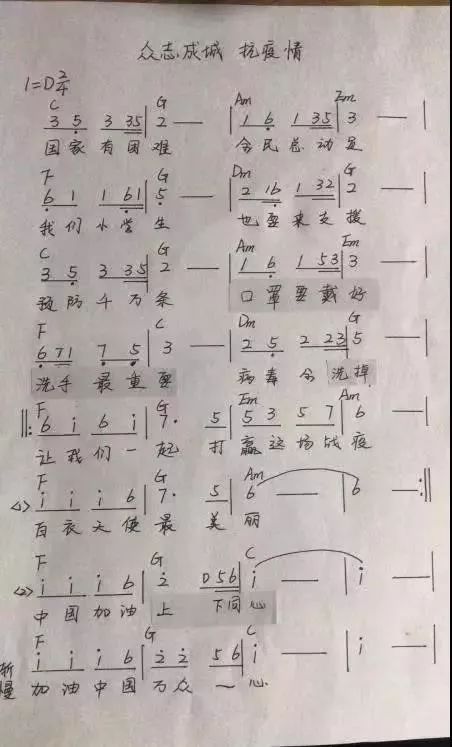 众志成城 抗疫情
1=D 2/4
C G Am Em
3 5 3 35 | 2 — | 1 6 1 35 | 3 — |
国家有困难 全民总动员
F G Dm G
6 1 1 61 | 5 — | 2 16 1 32 | 2 — |
我们小学生 也要来支援
C G Am Em
3 5 3 35 | 2 — | 1 6 1 53 | 3 — |
预防千万条 口罩要戴好
F C Dm G
6 71 7 5 | 3 — | 2 5 2 23 | 5 — |
洗手最重要 病毒全洗掉
F G Em Am
‖: 6 i 6 i | 7· 5 | 5 3 5 7 | 6 — |
让我们一起 打赢这场战疫
F G Am
<1> i i i 6 | 7· 5 | 6 — | 6 — :‖
白衣天使最美丽
F G C
<2> i i i 6 | 2 0 56 | i — | i — |
中国加油上下同心
F G C
渐慢 i i i 6 | 2 2 5 6 | i — | i — |
加油中国万众一心